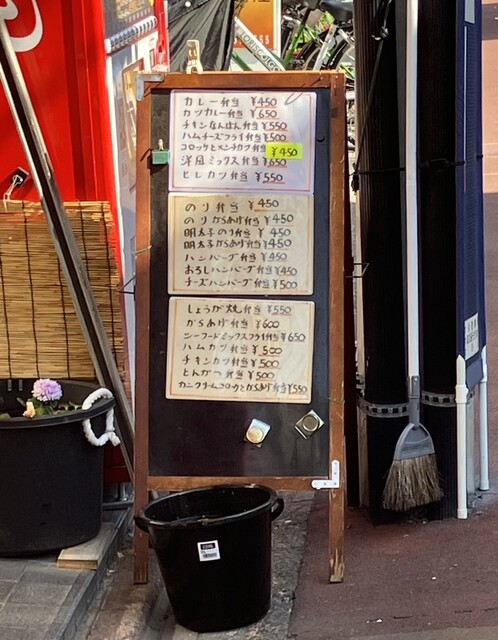 カレー弁当 ¥450
カツカレー弁当 ¥650
チキンなんばん弁当 ¥550
ハムチーズフライ弁当 ¥500
コロッケとメンチカツ弁当 ¥450
洋風ミックス弁当 ¥650
ヒレカツ弁当 ¥550
のり弁当 ¥450
のりからあげ弁当 ¥450
明太子のり弁当 ¥450
明太子からあげ弁当 ¥450
ハンバーグ弁当 ¥450
おろしハンバーグ弁当 ¥450
チーズハンバーグ弁当 ¥500
しょうが焼弁当 ¥550
からあげ弁当 ¥600
シーフードミックスフライ弁当 ¥650
ハムカツ弁当 ¥500
チキンカツ弁当 ¥500
とんかつ弁当 ¥500
カニクリームコロッケとからあげ弁当 ¥550